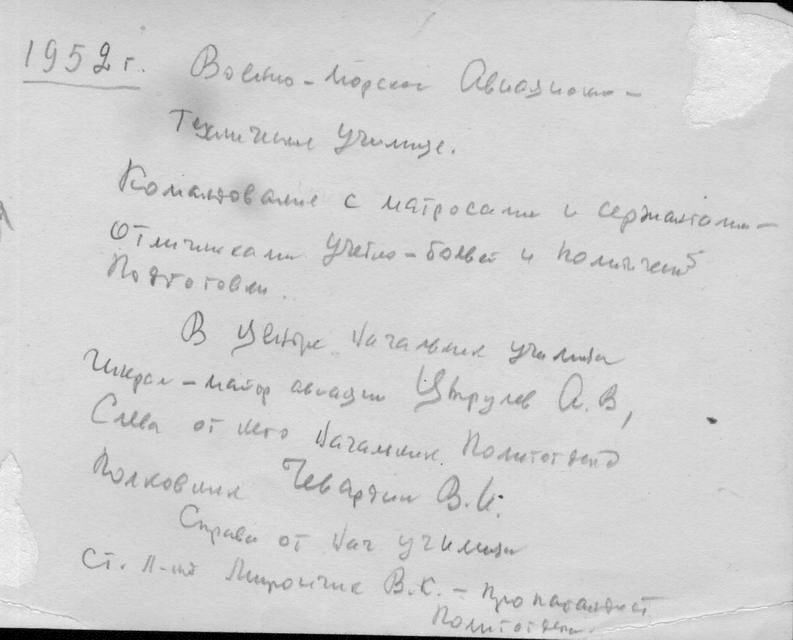 1952 г. Военно-Морское Авиационно-
Техническое училище.
Командование с матросами и сержантами-
отличниками учебно-боевой и политической
подготовки.
В центре начальник училища
генерал-майор авиации Цырулев А.В,
Слева от него начальник Политотдела
Полковник В.И.
Справа от нач училища
Ст. л-нт Мирончик В.К. - пропагандист
Политотдела.